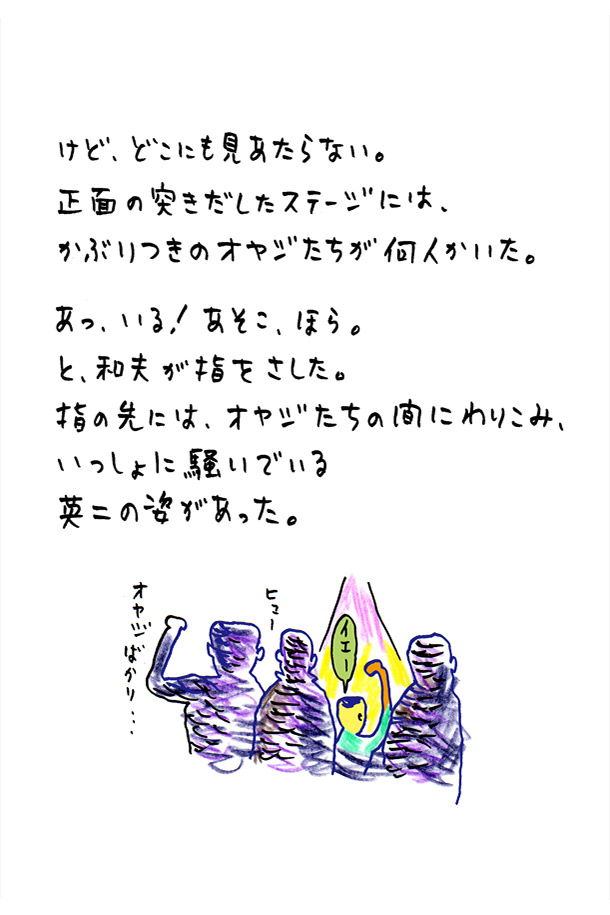 けど、どこにも見あたらない。
正面の突きだしたステージには、
かぶりつきのオヤジたちが何人かいた。
あっ、いる！あそこ、ほら。
と、和夫が指をさした。
指の先には、オヤジたちの間にわりこみ、
いっしょに騒いでいる
英二の姿があった。
オヤジばかり…
ヒュー
イエー